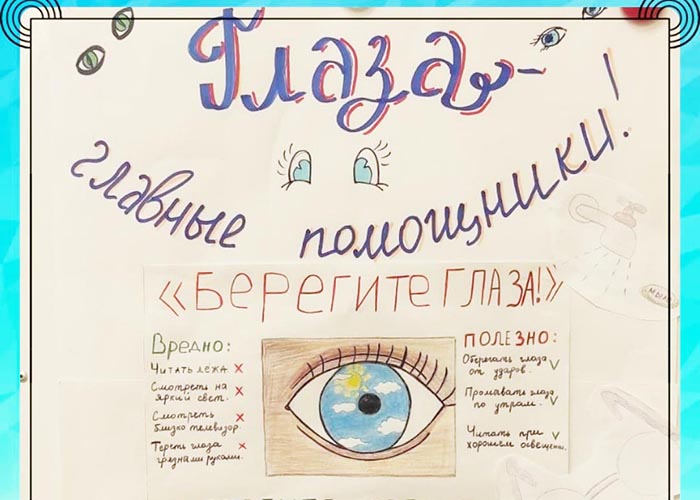 Глаза-
главные помощники!
«БЕРЕГИТЕ ГЛАЗА!»
Вредно:
Читать лежа.
Смотреть на
яркий свет.
Смотреть
близко телевизор.
Тереть глаза
грязными руками.
ПОЛЕЗНО:
Оберегать глаза
от ударов.
Промывать глаза
по утрам.
Читать при
хорошем освещении.
мыло